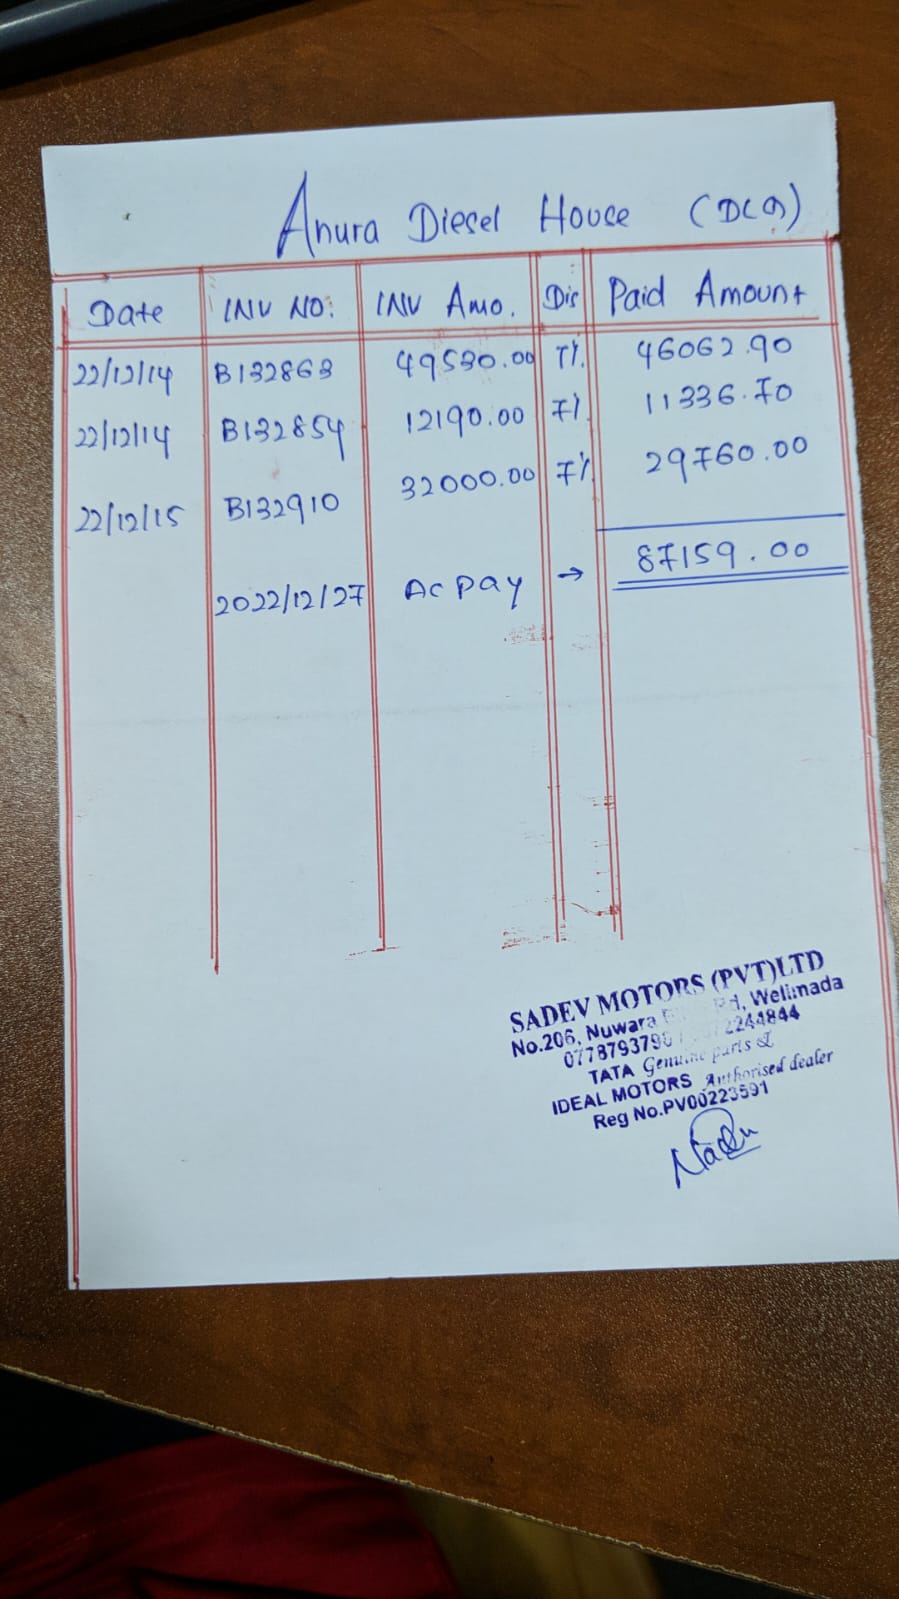 Anura Diesel House (DCA)
Date INV NO: INV Amo. Dis Paid Amount
22/12/14 B132863 49530.00 7% 46062.90
22/12/14 B132854 12190.00 7% 11336.70
22/12/15 B132910 32000.00 7% 29760.00
2022/12/27 Ac pay → 87159.00
SADEV MOTORS (PVT)LTD
No.206, Nuwara Rd, Welimada
077879379 2244844
TATA Genuine parts &
IDEAL MOTORS Authorised dealer
Reg No.PV00223591